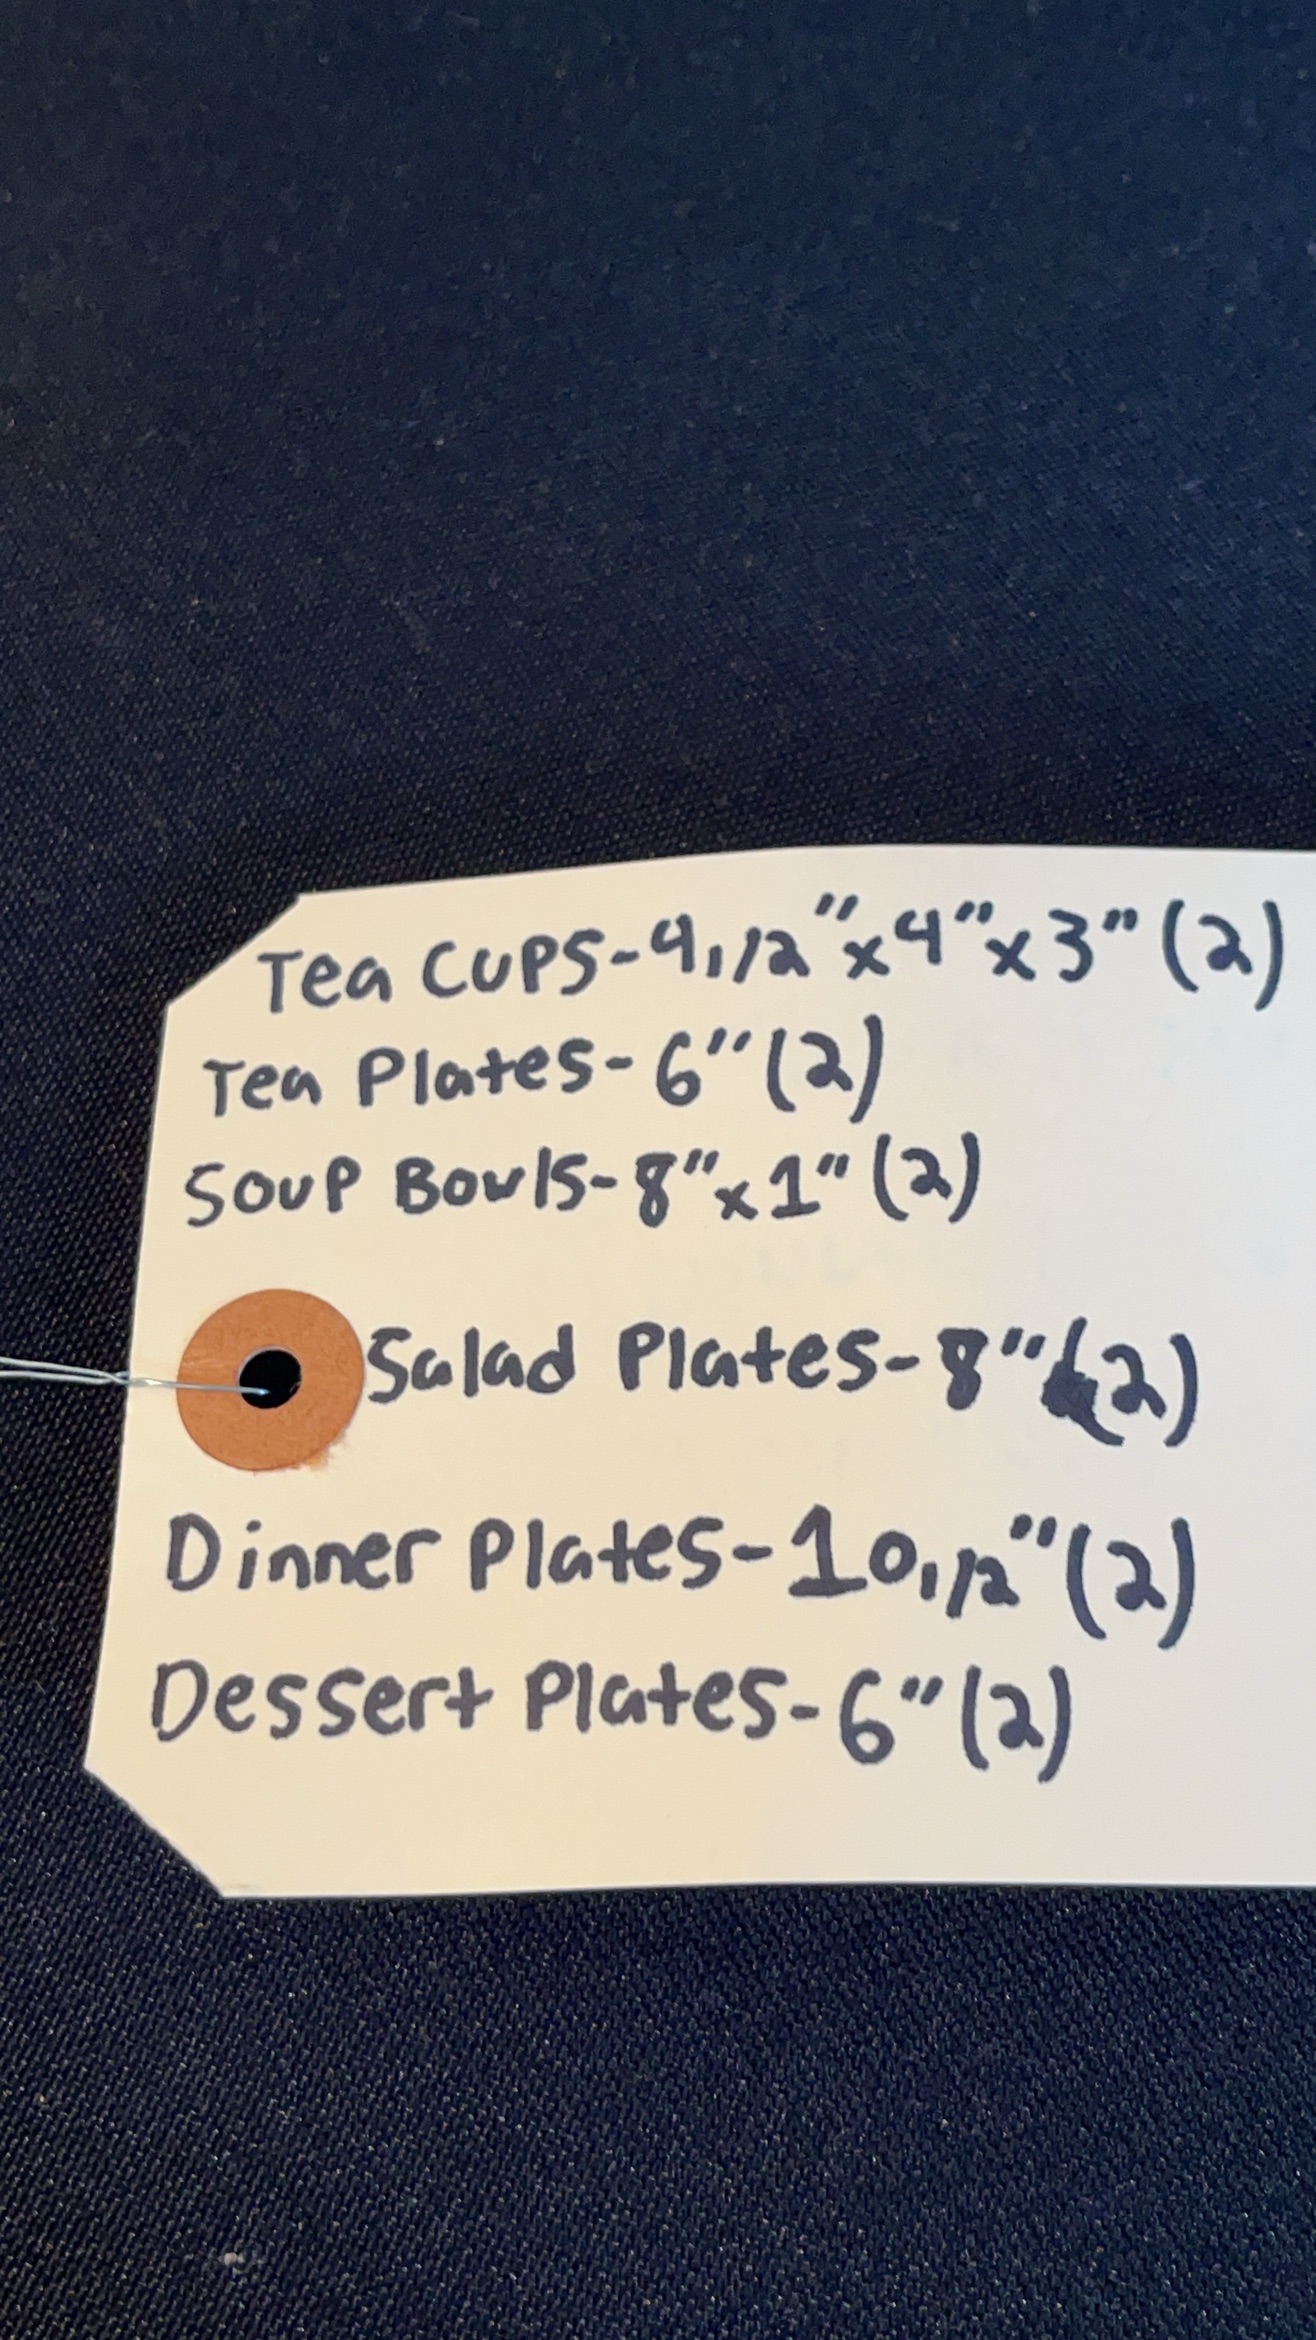 Tea Cups-4,1/2"x4"x3" (2)
Tea Plates-6" (2)
Soup Bowls-8"x1" (2)
Salad Plates-8" (2)
Dinner Plates-10,1/2" (2)
Dessert Plates-6" (2)